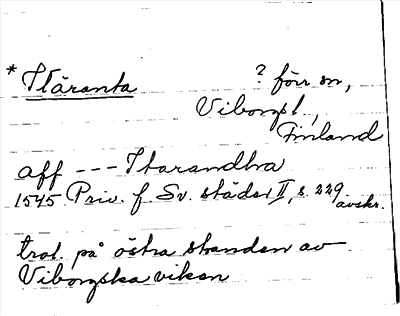 * Itäranta ? förr sn,
Viborgs l.,
Finland
aff --- Itarandha
1545 Priv. f. Sv. städer II, s. 229 avskr.
trol. på östra stranden av
Viborgska viken